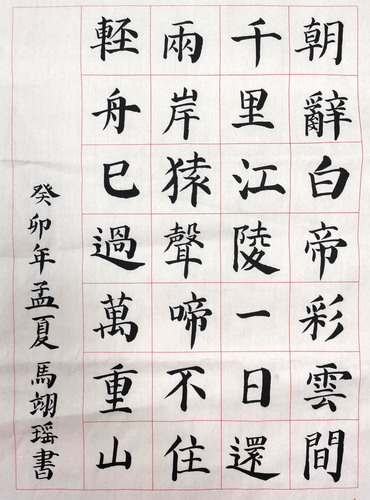 朝辭白帝彩雲間
千里江陵一日還
兩岸猿聲啼不住
輕舟已過萬重山
癸卯年孟夏馬翊瑶書